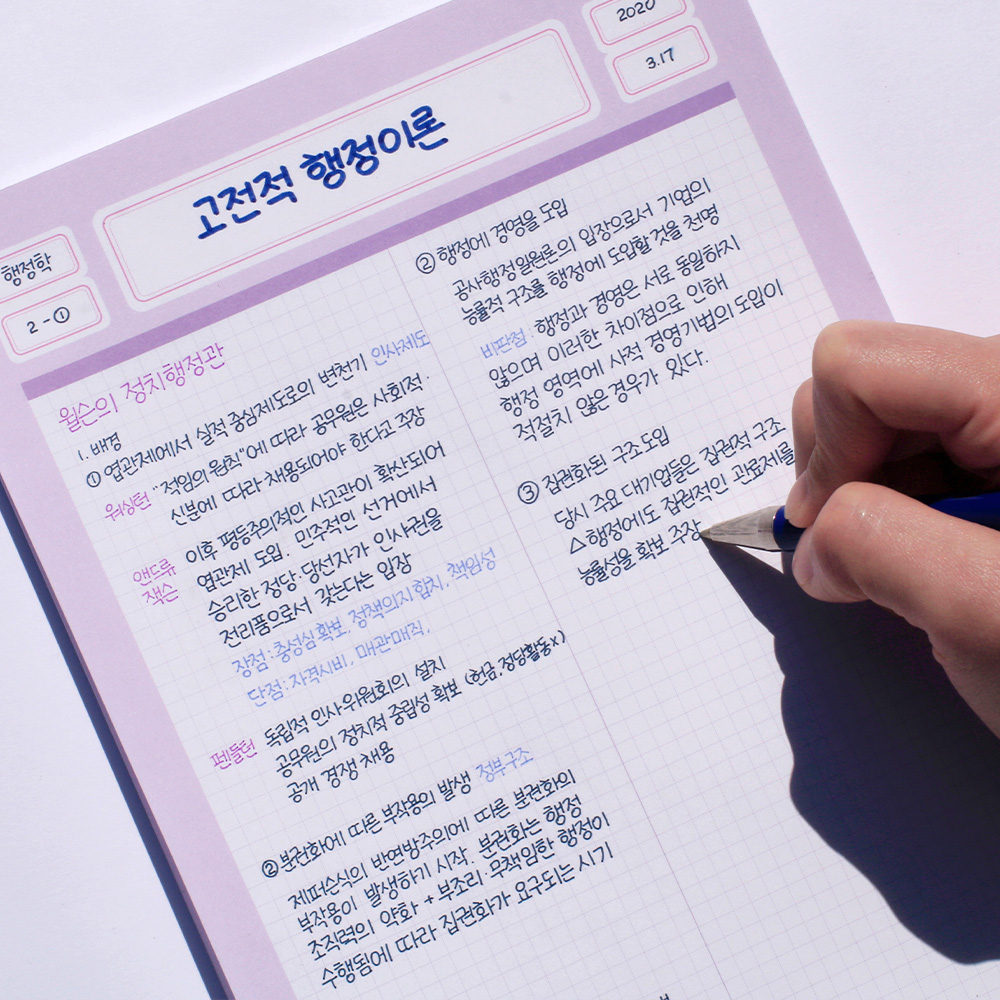 2020
3.17
고전적 행정이론
행정학
2-①
윌슨의 정치행정관
1. 배경
① 엽관제에서 실적 중심제도로의 변천기 인사제도
워싱턴 "적임의 원칙"에 따라 공무원은 사회적
신분에 따라 채용되어야 한다고 주장
앤드류
잭슨
이후 평등주의적인 사고관이 확산되어
엽관제 도입. 민주적인 선거에서
승리한 정당·당선자가 인사권을
전리품으로서 갖는다는 입장
장점: 충성심 확보, 정책의지 합치, 책임성
단점: 자격시비, 매관매직,
펜들턴 독립적 인사위원회의 설치
공무원의 정치적 중립성 확보 (헌금, 정당활동x)
공개 경쟁 채용
② 분권화에 따른 부작용의 발생 정부구조
제퍼슨식의 반연방주의에 따른 분권화의
부작용이 발생하기 시작. 분권화는 행정
조직력의 약화 + 부조리·무책임한 행정이
수행됨에 따라 집권화가 요구되는 시기
② 행정에 경영을 도입
공사행정일원론의 입장으로서 기업의
능률적 구조를 행정에 도입할 것을 천명
비판점: 행정과 경영은 서로 동일하지
않으며 이러한 차이점으로 인해
행정 영역에 사적 경영기법의 도입이
적절치 않은 경우가 있다.
③ 집권화된 구조 도입
당시 주요 대기업들은 집권적 구조
△행정에도 집권적인 관료제를
능률성을 확보 주장